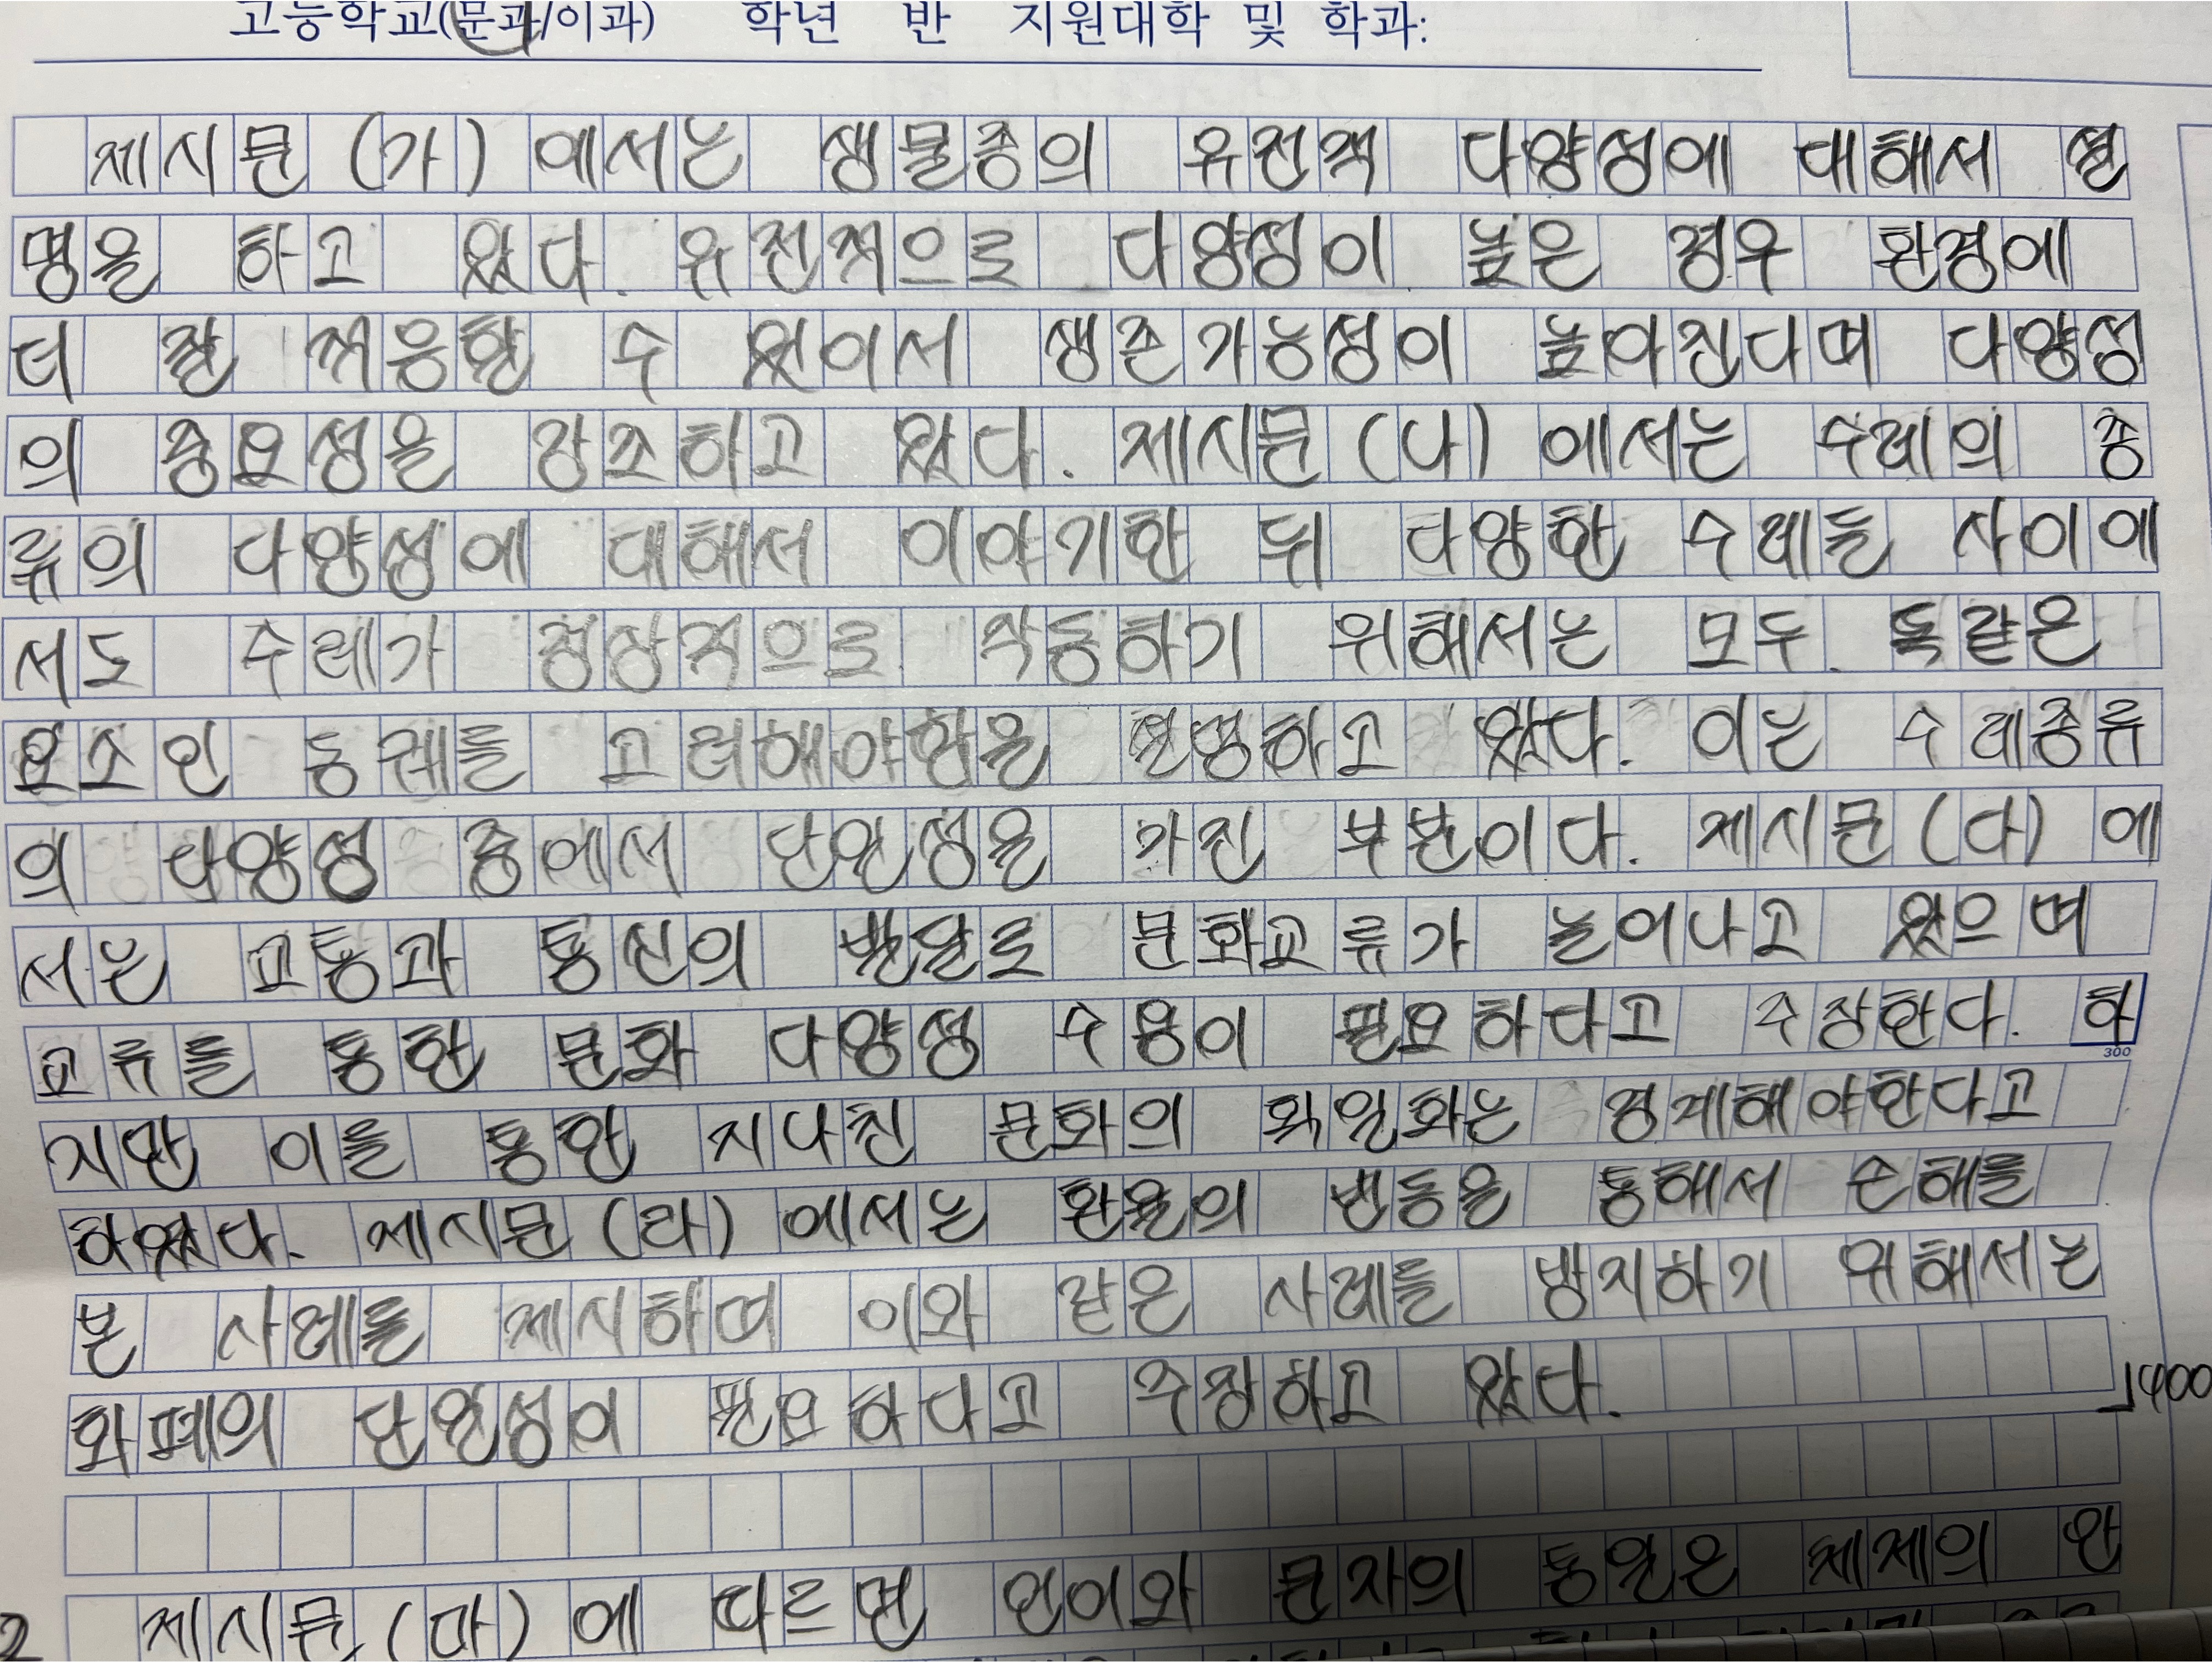 고등학교(문과/이과) 학년 반 지원대학 및 학과:
제시문 (가) 에서는 생물종의 유전적 다양성에 대해서 설
명을 하고 있다. 유전적으로 다양성이 높은 경우 환경에
더 잘 적응할 수 있어서 생존가능성이 높아진다며 다양성
의 중요성을 강조하고 있다. 제시문 (나) 에서는 수레의 종
류의 다양성에 대해서 이야기한 뒤 다양한 수레들 사이에
서도 수레가 정상적으로 작동하기 위해서는 모두 똑같은
요소인 동궤를 고려해야함을 설명하고 있다. 이는 수레종류
의 다양성 중에서 단일성을 가진 부분이다. 제시문 (다) 에
서는 교통과 통신의 발달로 문화교류가 늘어나고 있으며
교류를 통한 문화 다양성 수용이 필요하다고 주장한다. 하
300
지만 이를 통한 지나친 문화의 획일화는 경계해야한다고
하였다. 제시문 (라) 에서는 환율의 변동을 통해서 손해를
본 사례를 제시하며 이와 같은 사례를 방지하기 위해서는
화폐의 단일성이 필요하다고 주장하고 있다.
400
2 제시문 (마) 에 따르면 언어와 문자의 통일은 체제의 안